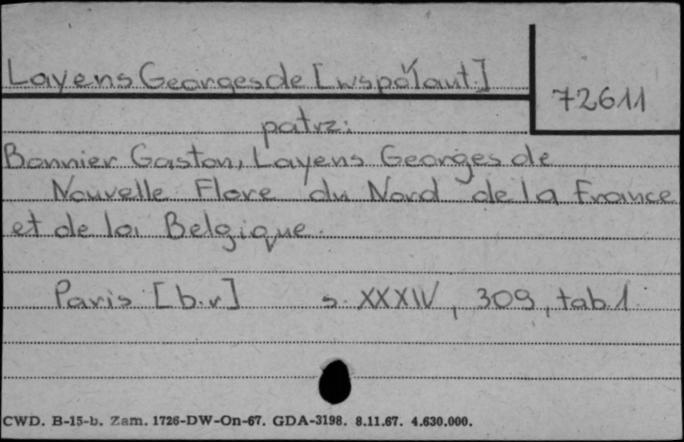 Layens Georges de [współaut.]
72611
patrz:
Bonnier Gaston, Layens Georges de
Nouvelle Flore du Nord de la France
et de la Belgique.
Paris [b.r] s. XXXIV, 309, tab. 1.
CWD. B-15-b. Zam. 1726-DW-On-67. GDA-3198. 8.11.67. 4.630.000.